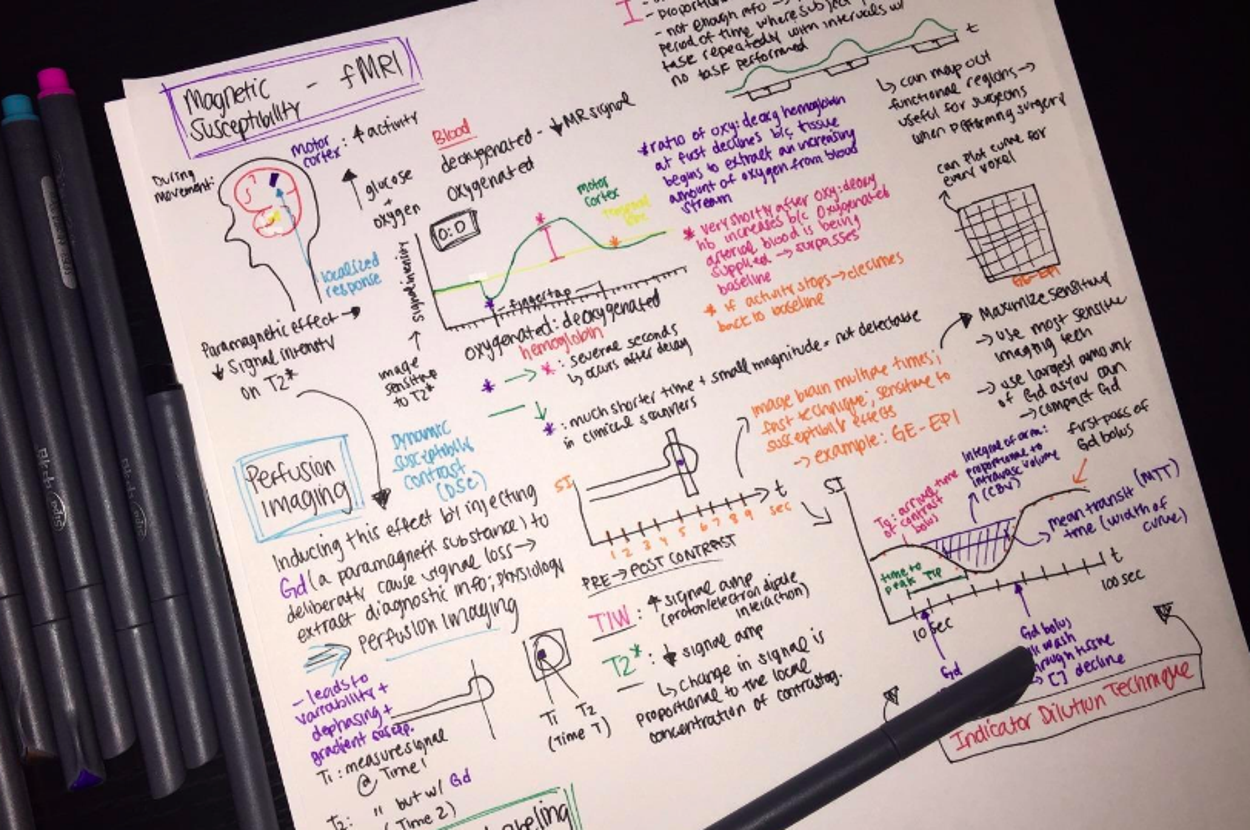 Magnetic
Susceptibility - fMRI
- not enough info →
period of time where subject
task repeatedly with intervals w/
no task performed
t
↳ can map out
functional regions →
useful for surgeons
when performing surgery
can plot curve for
every voxel
GE-EPI
During
movement:
motor
cortex: ↑ activity
↑ glucose
+
oxygen
localized
response
Paramagnetic effect →
↓ signal intensity
on T2*
Blood
deoxygenated - ↓ MR signal
oxygenated
motor
cortex
signal intensity
fingertap
oxygenated: deoxygenated
hemoglobin
image
sensitive
to T2*
* → * : several seconds
↳ occurs after delay
* : much shorter time + small magnitude = not detectable
in clinical scanners
*ratio of oxy:deoxy hemoglobin
at first declines b/c tissue
begins to extract an increasing
amount of oxygen from blood
stream
* very shortly after oxy:deoxy
hb increases b/c oxygenated
arterial blood is being
supplied → surpasses
baseline
* if activity stops → declines
back to baseline
Perfusion
imaging
Dynamic
susceptibility
contrast
(DSC)
Inducing this effect by injecting
Gd (a paramagnetic substance) to
deliberately cause signal loss →
extract diagnostic info; physiology
⇒ Perfusion imaging
- leads to
variability +
dephasing +
gradient suscep.
T1: measure signal
@ Time 1
T2: " but w/ Gd
(Time 2)
T1 T2
(Time T)
SI
1 2 3 4 5 6 7 8 9 sec
t
PRE → POST CONTRAST
T1W: ↑ signal amp
(proton/electron dipole
interaction)
T2*: ↓ signal amp
↳ change in signal is
proportional to the local
concentration of contrast ag.
image brain multiple times;
fast technique; sensitive to
susceptibility effects
→ example: GE-EPI
Maximize sensitivity
→ use most sensitive
imaging tech
→ use largest amount
of Gd as you can
→ compact Gd
first pass of
Gd bolus
Integral of area:
proportional to
intravasc volume
(CBV)
T0: arrival time
of contrast
bolus
SI
time to
peak TTP
Mean transit (MTT)
time (width of
curve)
t
10 sec
100 sec
Gd
Gd bolus
wash
through tissue
→ [] decline
Indicator Dilution Technique